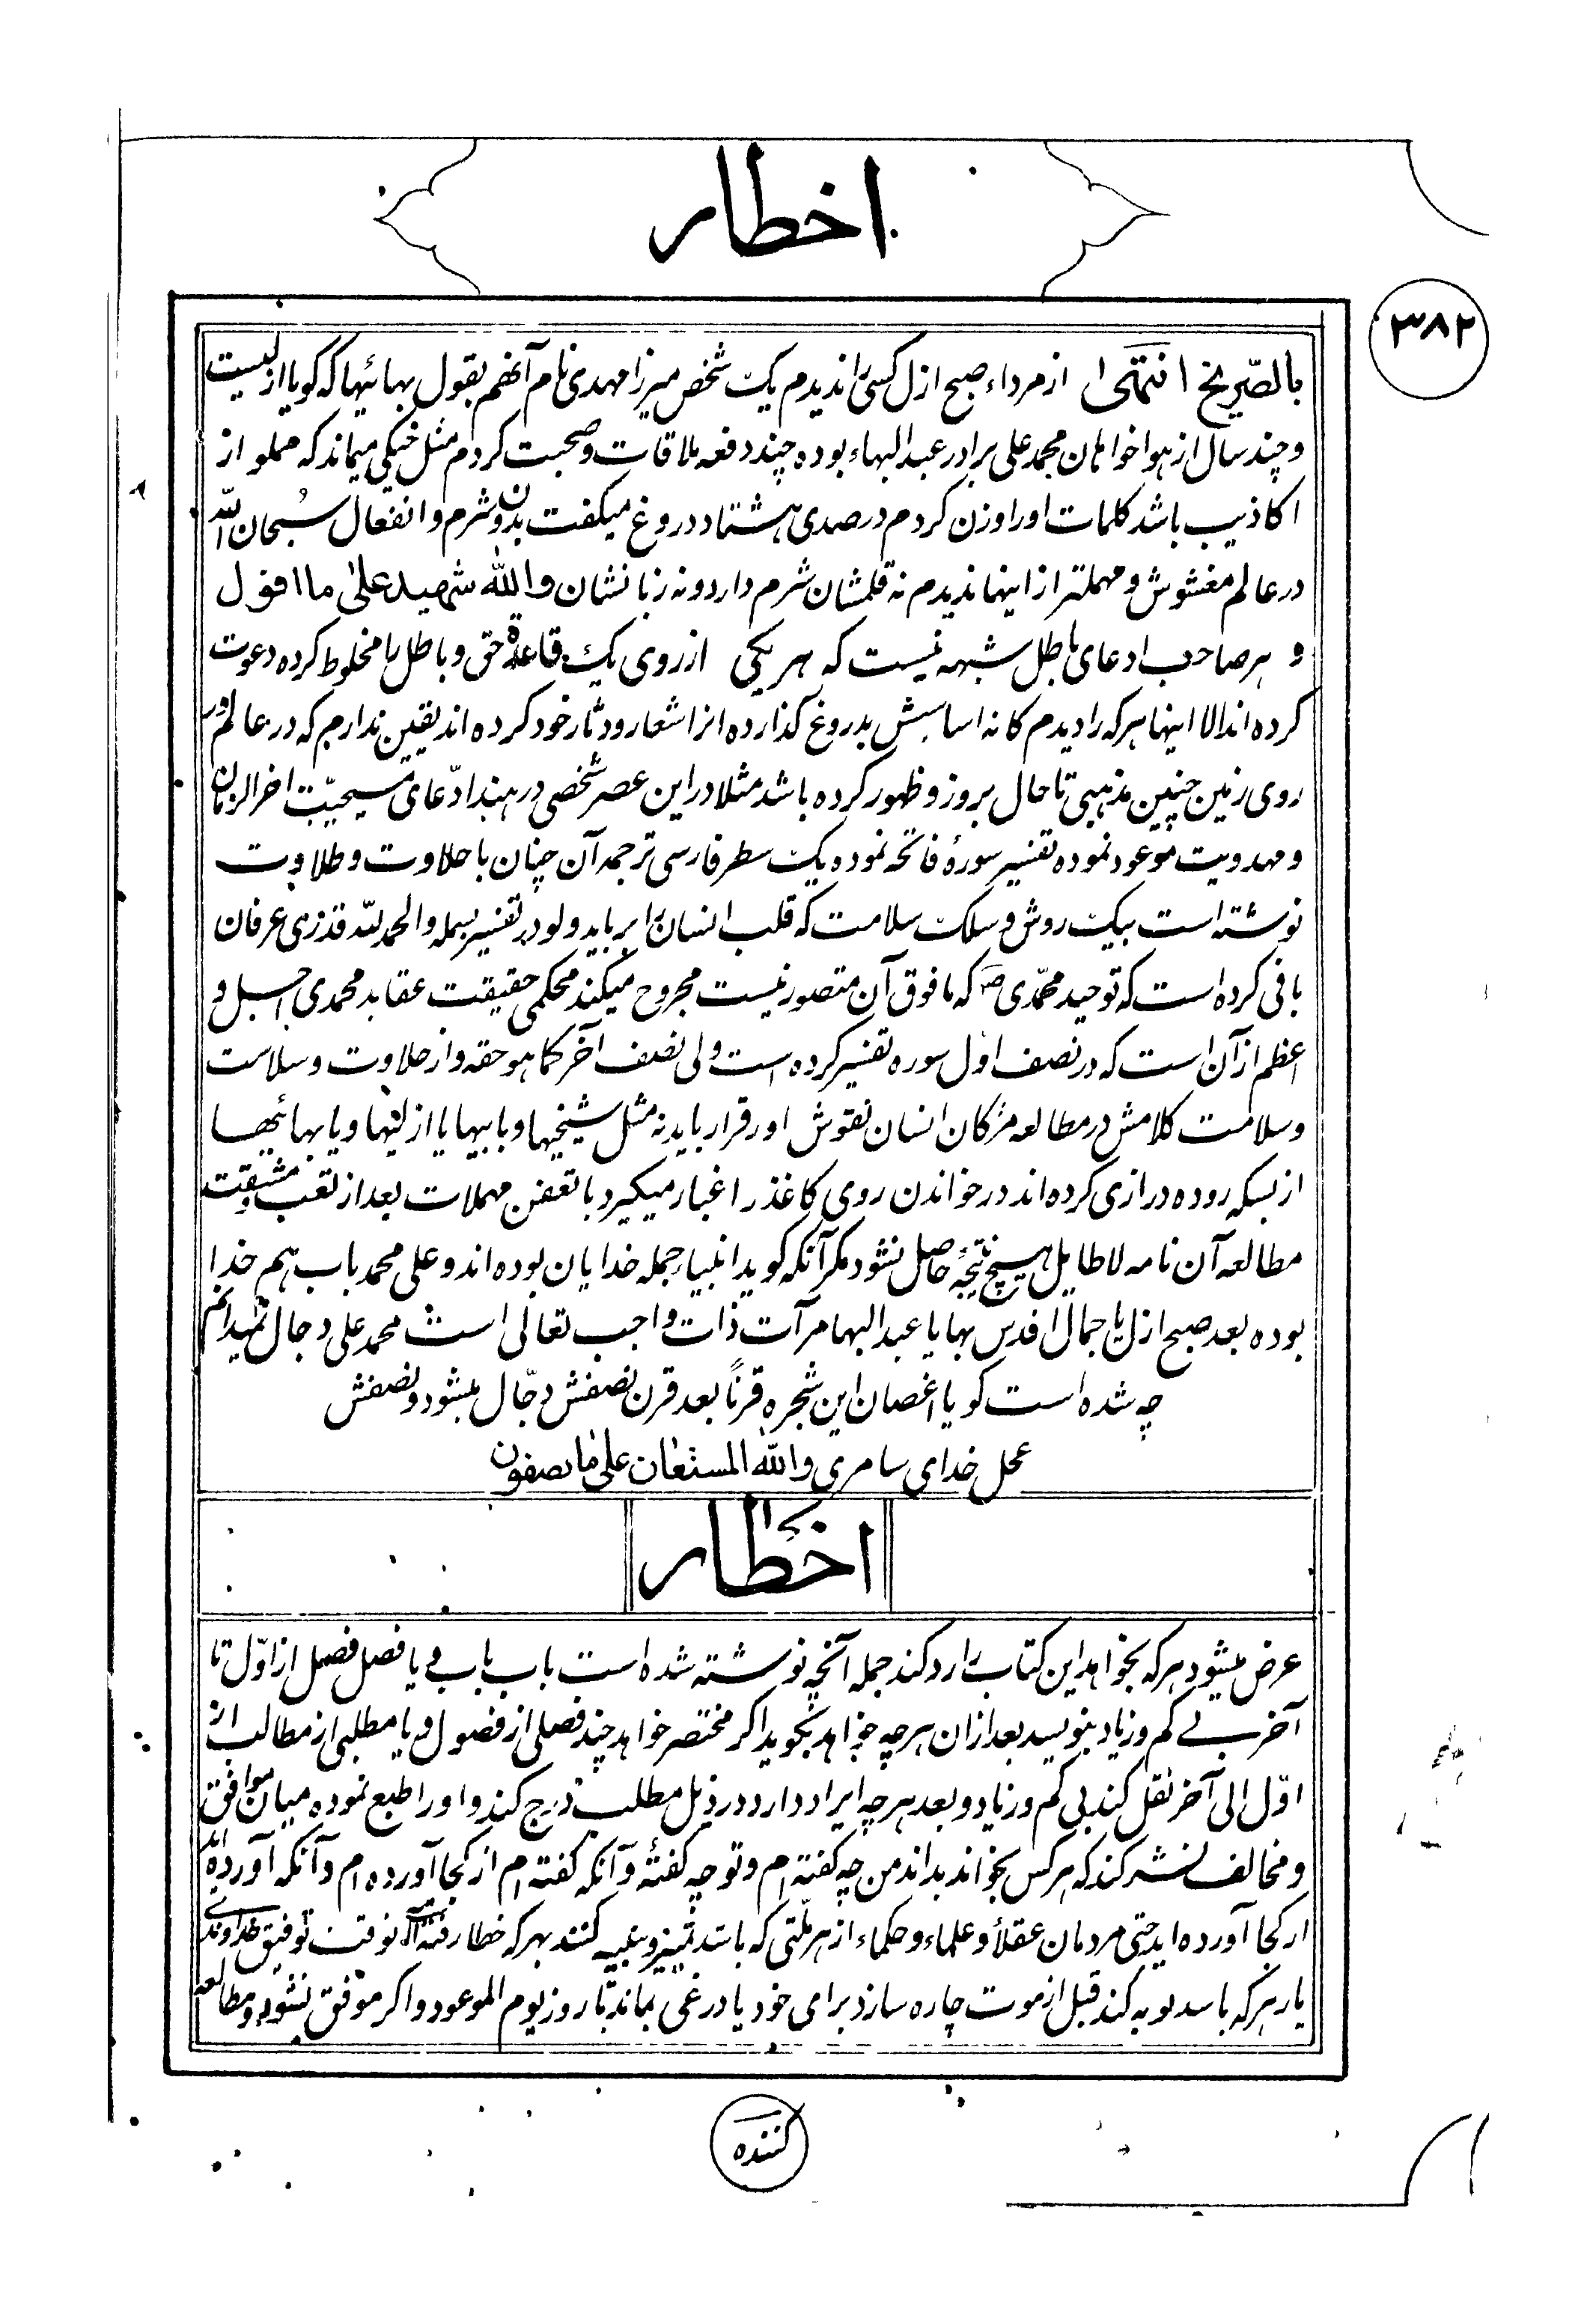 اخطار
۳۸۲
بالصّریخ انتهی از مرداء صبح ازل کسی را ندیدم یک شخص میرزا مهدی نام آنهم بقول بهائیها که گویا ازلیست
و چند سال از هواخواهان محمد علی برادر عبد البهاء بوده چند دفعه ملاقات و صحبت کردم مثل خیکی میماند که مملو از
اکاذیب باشد کلمات او را وزن کردم در صدی هشتاد دروغ میگفت بدون شرم و انفعال سُبحان الله
در عالم مغشوش و مهملتر از اینها ندیدم نه قلمشان شرم دارد و نه زبانشان والله شهید علی ما اقول
و هر صاحب ادعای باطل شبهه نیست که هر یکی از روی یک قاعدهٔ حق و باطل را مخلوط کرده دعوت
کرده اند الا اینها هر که را دیدم کانه اساسش بدروغ گذارده انرا شعار و دثار خود کرده اند یقین ندارم که در عالم و در
روی زمین چنین مذهبی تا حال بروز و ظهور کرده باشد مثلا در این عصر شخصی در هند ادّعای مسیحیّت اخر الزمان
و مهدویت موعود نموده تفسیر سورهٔ فاتحه نموده یک سطر فارسی ترجمه آن چنان با حلاوت و طلاوت
نوشته است بیک روش و سلک سلامت که قلب انسان را برباید ولو در تفسیر بسمله و الحمد لله قدری عرفان
بافی کرده است که توحید محمّدی ص که مافوق آن متصور نیست مجروح میکند محکمی حقیقت عقاید محمدی اجل و
اعظم از آن است که در نصف اول سوره تفسیر کرده است ولی نصف آخر کما هو حقه و از حلاوت و سلاست
و سلامت کلامش در مطالعه مژکان انسان نقوش او را قرار باید نه مثل شیخیها و بابیها یا ازلیها و یا بهائیها
از بسکه روده درازی کرده اند در خواندن روی کاغذ را غبار میگیرد با تعفن مهملات بعد از تعب و مشقت
مطالعه آن نامه لاطایل هیچ نتیجه حاصل نشود مگر آنکه گوید انبیاء جمله خدایان بوده اند و علی محمد باب هم خدا
بوده بعد صبح ازل یا جمال اقدس بها یا عبد البها مرآت ذات واجب تعالی است محمد علی دجال نمیدانم
چه شده است گویا اغصان این شجره قرناً بعد قرن نصفش دجّال میشود و نصفش
عجل خدای سامری والله المستعان علی ما یصفون
اخطار
عرض میشود هر که بخواهد این کتاب را رد کند جمله آنچه نوشته شده است باب باب و یا فصل فصل از اوّل تا
آخر بی کم و زیاد بنویسد بعد ازان هر چه خواهد بگوید اگر مختصر خواهد چند فصلی از فصول و یا مطلبی از مطالب از
اوّل الی آخر نقل کند بی کم و زیاد و بعد هر چه ایراد دارد در ذیل مطلب درج کند و او را طبع نموده میان موافق
و مخالف نشر کند که هر کس بخواند بداند من چه گفته ام و تو چه گفتهٔ و آنکه گفته ام از کجا آورده ام و آنکه آورده اید
از کجا آورده اید حتی مردمان عقلاً و علماء و حکماء از هر ملّتی که باشد تمیز و کنند بهر که خطا رفته نوقت توفیق خداوندی
یار هر که باشد توبه کند قبل از موت چاره سازد برای خود یا در غی بماند تا روز یوم الموعود و اگر موفق نشود و مطالعه
کننده